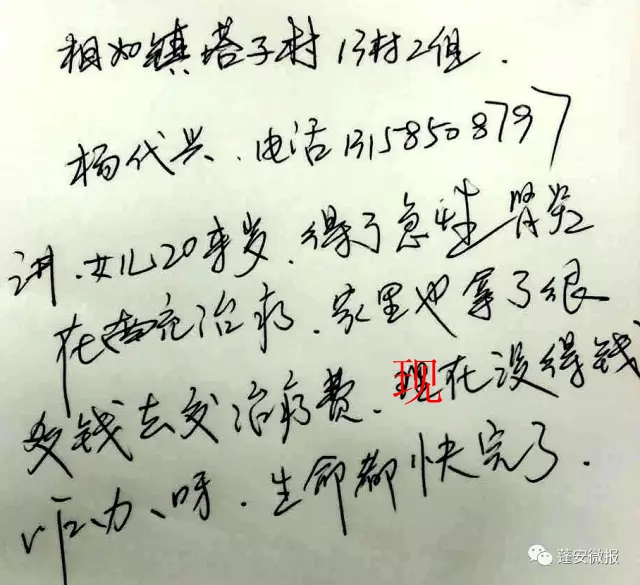 相如镇塔子村13村2组.
杨代兴.电话13158508797
讲.女儿20来岁.得了急性肾炎
在南充治病.家里也拿了很
多钱去交治疗费.现在没得钱
咋办呀.生命都快完了.
蓬安微报